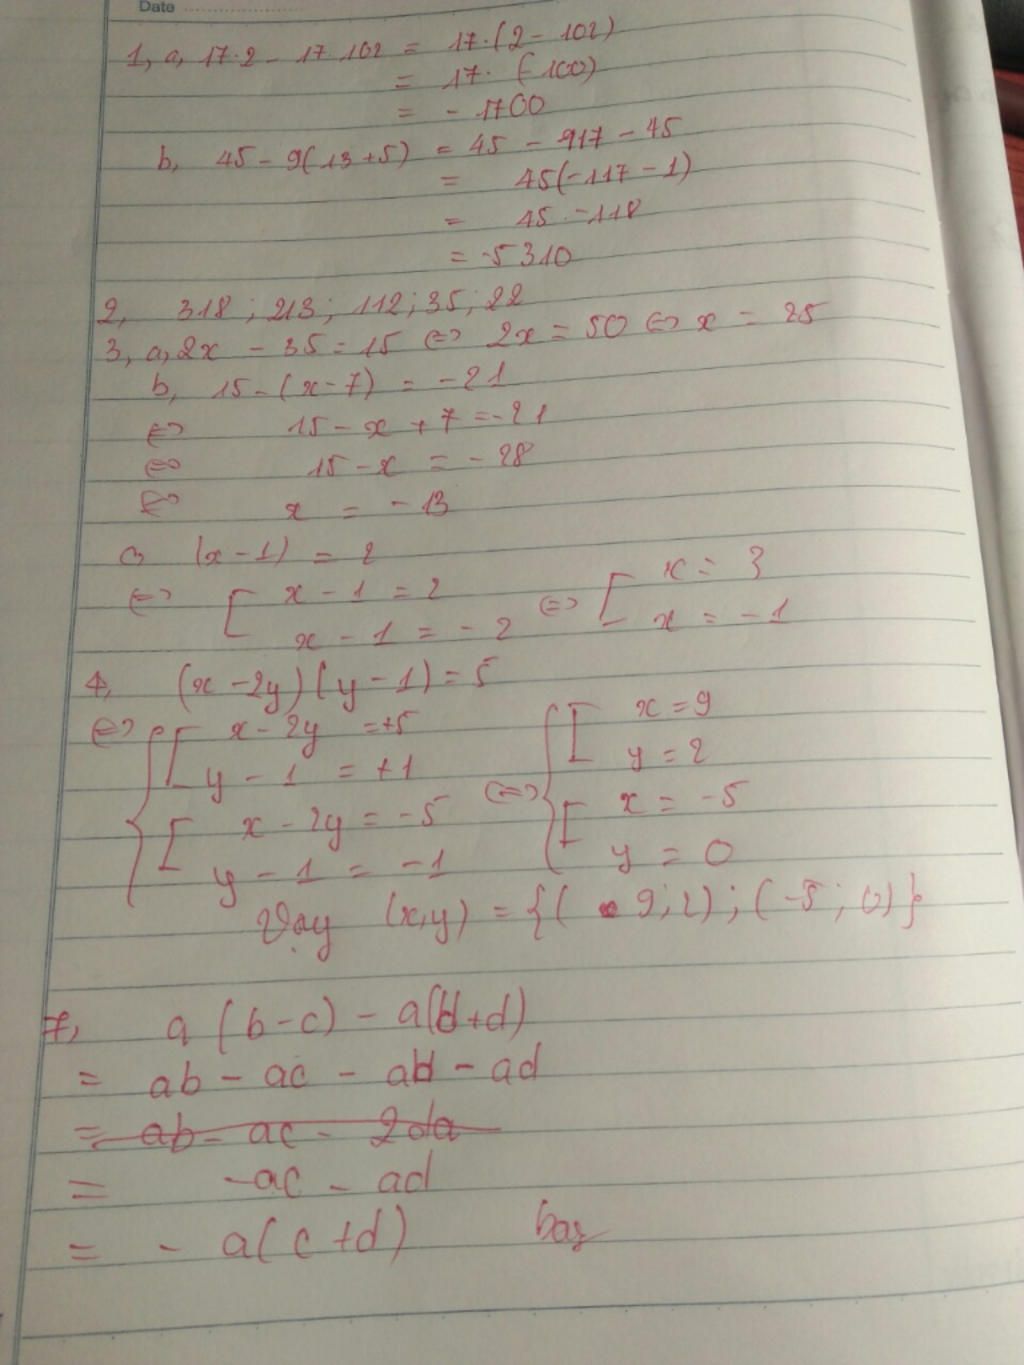 Date
1, a, 17.2 - 17.102 = 17.(2 - 102)
= 17. (-100)
= - 1700
b, 45 - 9(13 + 5) = 45 - 917 - 45
= 45(-117 - 1)
= 45 . -118
= -5310
2, 318 ; 213 ; 112 ; 35 ; 22
3, a, 2x - 35 = 15 <=> 2x = 50 <=> x = 25
b, 15 - (x - 7) = -21
<=> 15 - x + 7 = -21
<=> 15 - x = - 28
<=> x = - 13
c, (x - 1) = 2
<=> [ x - 1 = 2 <=> [ x = 3
x - 1 = - 2 x = - 1
4, (x - 2y)(y - 1) = 5
<=> { [ x - 2y = +5 <=> { [ x = 9
y - 1 = +1 y = 2
[ x - 2y = -5 [ x = -5
y - 1 = -1 y = 0
Vậy (x,y) = {( 9; 2) ; (-5 ; 0)}
7, a (b - c) - a(b + d)
= ab - ac - ab - ad
= ab - ac - 2da
= -ac - ad
= - a( c + d)